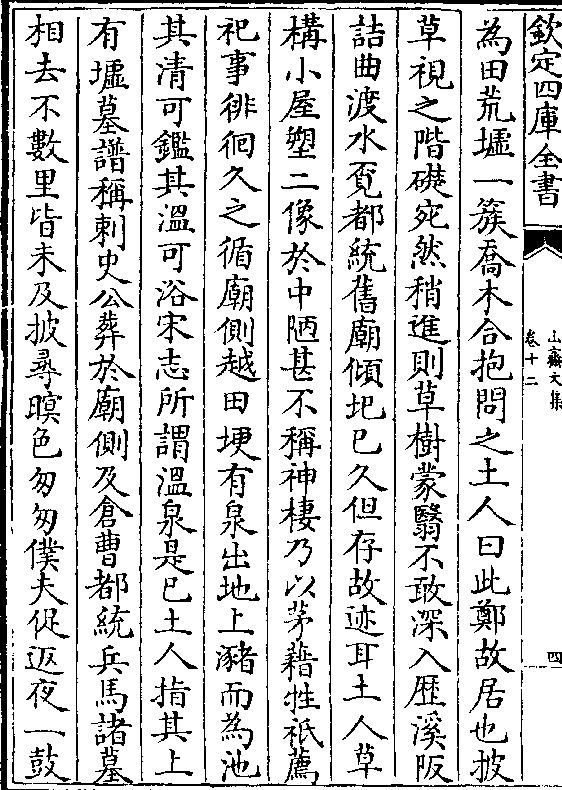 欽定四庫全書
山齋文集
卷十二
四
為田荒墟一簇喬木合抱問之土人曰此鄭故居也披
草視之階礎宛然稍進則草樹蒙翳不敢深入歷溪阪
詰曲渡水覔都統舊廟傾圯已久但存故迹耳土人草
構小屋塑二像於中陋甚不稱神棲乃以茅藉牲祇薦
祀事徘徊久之循廟側越田埂有泉出地上瀦而為池
其清可鑑其溫可浴宋志所謂溫泉是已土人指其上
有墟墓譜稱刺史公葬於廟側及倉曹都統兵馬諸墓
相去不數里皆未及披尋暝色匆匆僕夫促返夜一鼓